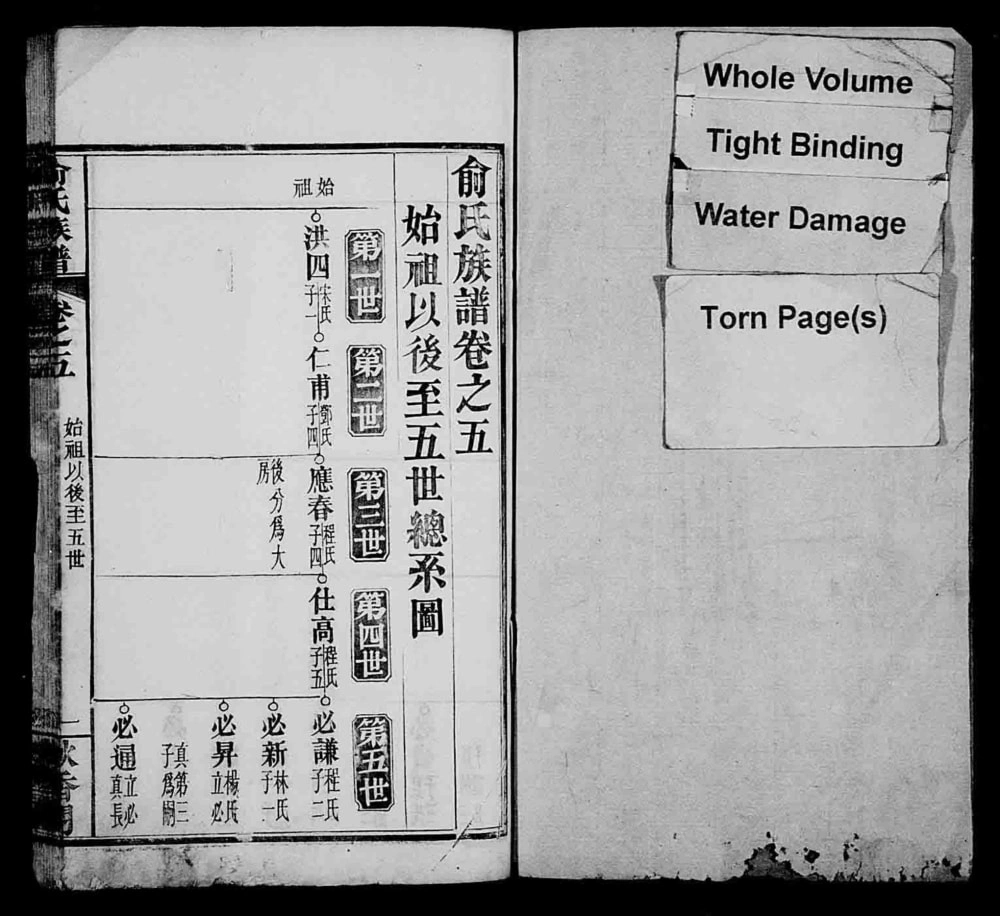 Whole Volume
Tight Binding
Water Damage
Torn Page(s)
俞氏族譜卷之五
始祖以後至五世總系圖
第一世
第二世
第三世
第四世
第五世
始祖
洪四
宋氏
子一
仁甫
鄭氏
子四
應春
程氏
子四
後分爲大
房
仕高
程氏
子五
必謙
程氏
子二
必新
林氏
子一
必昇
楊氏
立必
真第三
子爲嗣
必通
立必
真長
氏族譜
卷之五
始祖以後至五世
一